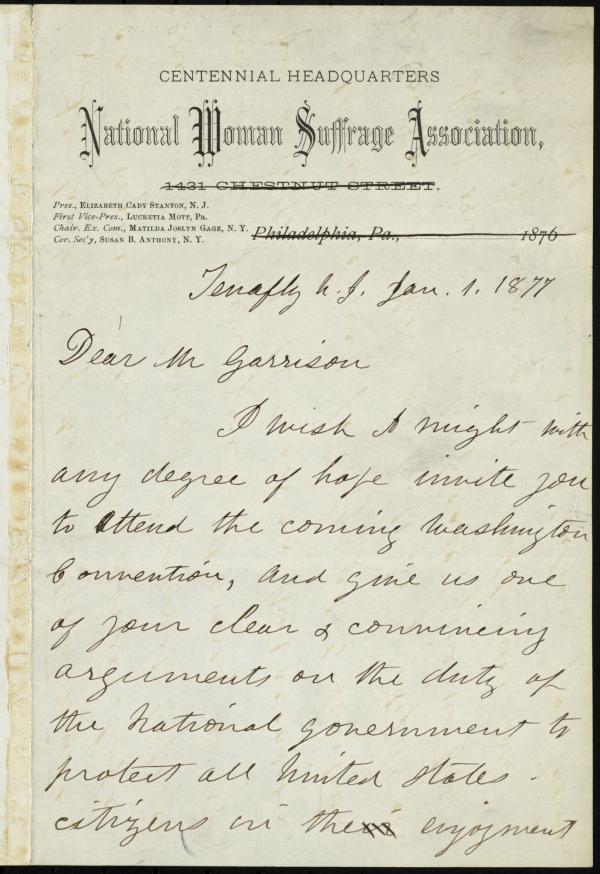 CENTENNIAL HEADQUARTERS
National Woman Suffrage Association,
1431 CHESTNUT STREET.
Pres., ELIZABETH CADY STANTON, N. J.
First Vice-Pres., LUCRETIA MOTT, Pa.
Chair. Ex. Com., MATILDA JOSLYN GAGE, N. Y.
Cor. Sec'y, SUSAN B. ANTHONY, N. Y.
Philadelphia, Pa., 1876
Tenafly N. J. Jan. 1. 1877
Dear Mr Garrison
I wish I might with
any degree of hope invite you
to attend the coming Washington
Convention, and give us one
of your clear & convincing
arguments on the duty of
the National government to
protect all United States
citizens in the enjoyment